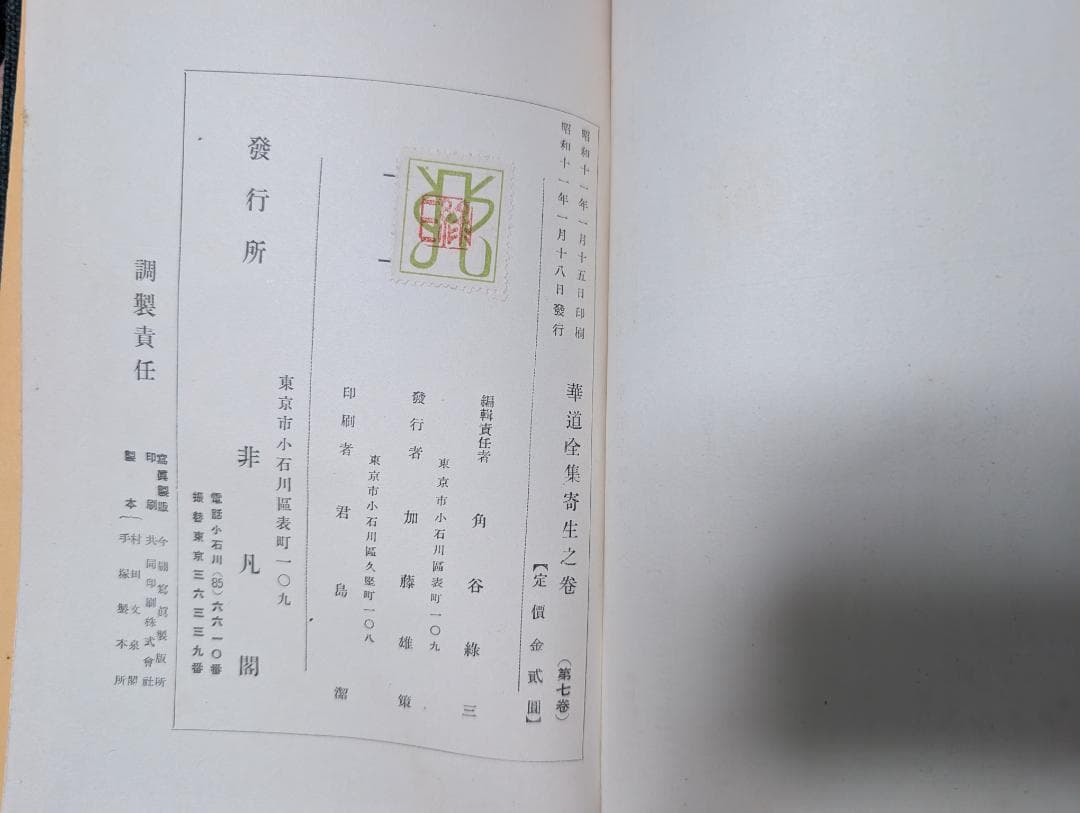 昭和十一年一月十五日印刷
昭和十一年一月十八日發行
華道全集寄生之卷
(第七卷)
【定價金貳圓】
編輯責任者 角谷綠三
東京市小石川區表町一〇九
發行者 加藤雄策
東京市小石川區久堅町一〇八
印刷者 君島潔
東京市小石川區表町一〇九
發行所 非凡閣
電話小石川(85)六六一〇番
振替東京三六三三九番
調製責任
寫眞製版 今 寫眞製版所
印刷 共同印刷株式會社
製本 村田文泉閣
手塚製本所